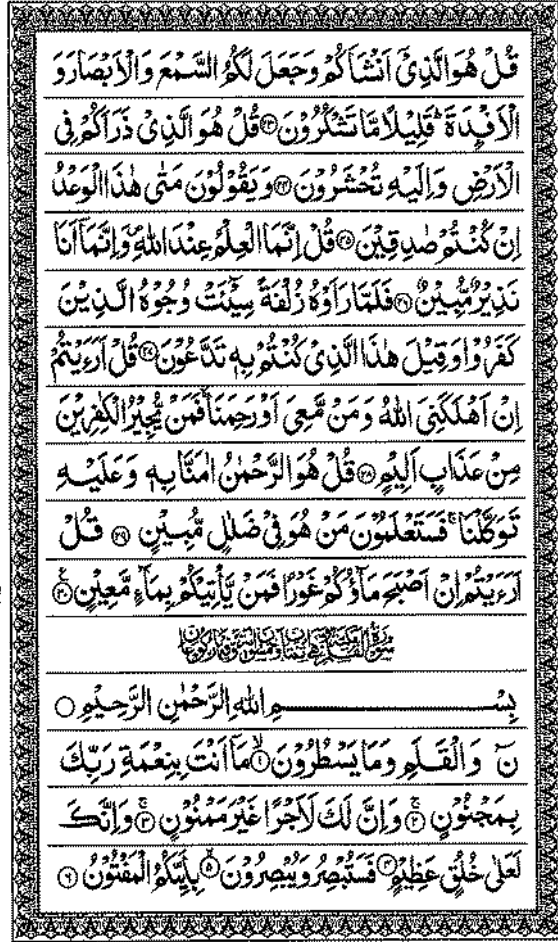 قُلْ هُوَ الَّذِیْۤ اَنْشَاَكُمْ وَجَعَلَ لَكُمُ السَّمْعَ وَالْاَبْصَارَ وَ
الْاَفْـِٕدَةَ ؕ قَلِیْلًا مَّا تَشْكُرُوْنَ ۝۲۳ قُلْ هُوَ الَّذِیْ ذَرَاَكُمْ فِی
الْاَرْضِ وَاِلَیْهِ تُحْشَرُوْنَ ۝۲۴ وَیَقُوْلُوْنَ مَتٰی هٰذَا الْوَعْدُ
اِنْ كُنْتُمْ صٰدِقِیْنَ ۝۲۵ قُلْ اِنَّمَا الْعِلْمُ عِنْدَ اللّٰهِ ۪ وَاِنَّمَاۤ اَنَا
نَذِیْرٌ مُّبِیْنٌ ۝۲۶ فَلَمَّا رَاَوْهُ زُلْفَةً سِیْٓـَٔتْ وُجُوْهُ الَّذِیْنَ
كَفَرُوْا وَقِیْلَ هٰذَا الَّذِیْ كُنْتُمْ بِهٖ تَدَّعُوْنَ ۝۲۷ قُلْ اَرَءَیْتُمْ
اِنْ اَهْلَكَنِیَ اللّٰهُ وَمَنْ مَّعِیَ اَوْ رَحِمَنَا ۙ فَمَنْ یُّجِیْرُ الْكٰفِرِیْنَ
مِنْ عَذَابٍ اَلِیْمٍ ۝۲۸ قُلْ هُوَ الرَّحْمٰنُ اٰمَنَّا بِهٖ وَعَلَیْهِ
تَوَكَّلْنَا ۚ فَسَتَعْلَمُوْنَ مَنْ هُوَ فِیْ ضَلٰلٍ مُّبِیْنٍ ۝۲۹ قُلْ
اَرَءَیْتُمْ اِنْ اَصْبَحَ مَآؤُكُمْ غَوْرًا فَمَنْ یَّاْتِیْكُمْ بِمَآءٍ مَّعِیْنٍ ۝۳۰
بِسْمِ اللّٰهِ الرَّحْمٰنِ الرَّحِیْمِ ۝
نٓ وَالْقَلَمِ وَمَا یَسْطُرُوْنَ ۝۱ مَاۤ اَنْتَ بِنِعْمَةِ رَبِّكَ
بِمَجْنُوْنٍ ۝۲ وَاِنَّ لَكَ لَاَجْرًا غَیْرَ مَمْنُوْنٍ ۝۳ وَاِنَّكَ
لَعَلٰی خُلُقٍ عَظِیْمٍ ۝۴ فَسَتُبْصِرُ وَیُبْصِرُوْنَ ۝۵ بِاَیِّىكُمُ الْمَفْتُوْنُ ۝۶